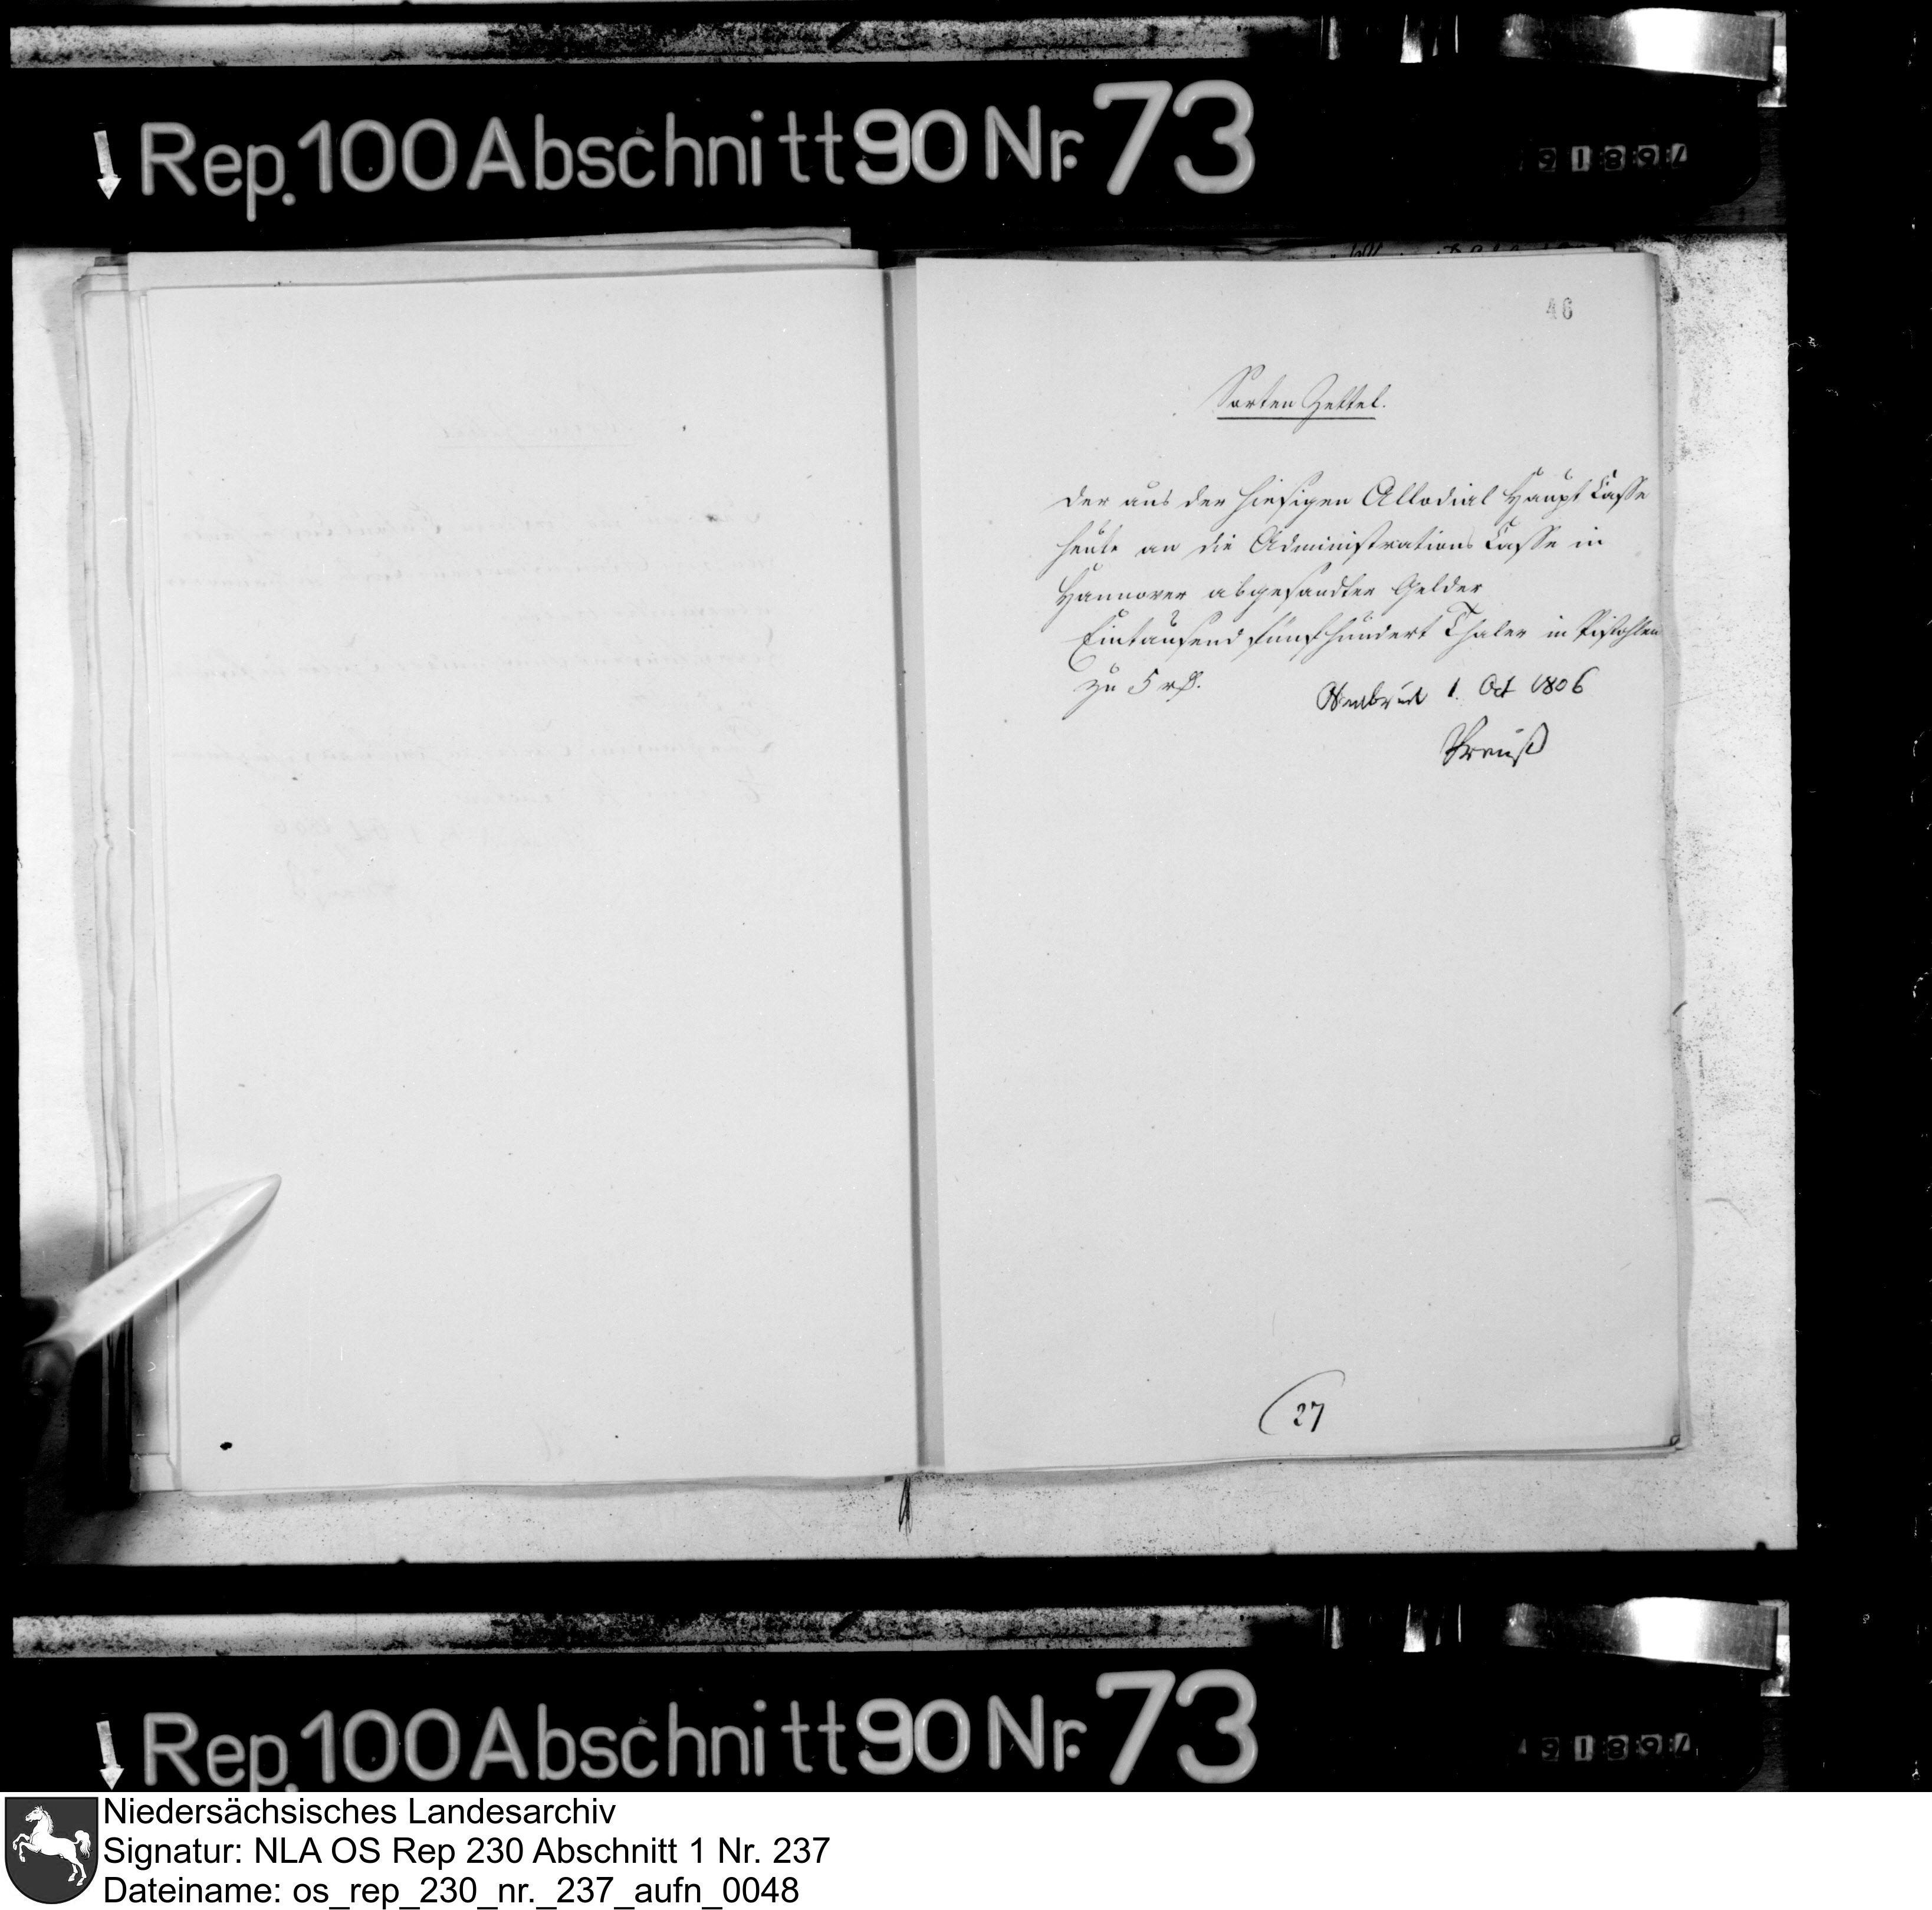 Rep. 100 Abschnitt 90 Nr. 73
91897
46
Sorten Zettel.
der aus der hiesigen Allodial Haupt Casse
heute an die Administrations Casse in
Hannover abgesandten Gelder
Eintausend fünfhundert Thaler in Pistohlen
zu 5 rß.
Osnabrück 1. Oct 1806
Preuß
27
Rep. 100 Abschnitt 90 Nr. 73
91897
Niedersächsisches Landesarchiv
Signatur: NLA OS Rep 230 Abschnitt 1 Nr. 237
Dateiname: os_rep_230_nr._237_aufn_0048